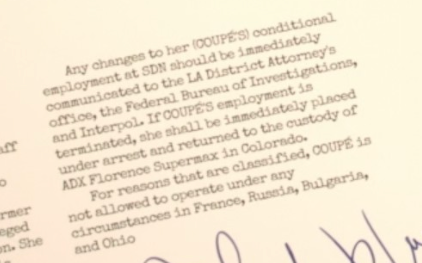 Any changes to her (COUPÉ'S) conditional
employment at SDN should be immediately
communicated to the LA District Attorney's
office, the Federal Bureau of Investigations,
and Interpol. If COUPÉ'S employment is
terminated, she shall be immediately placed
under arrest and returned to the custody of
ADX Florence Supermax in Colorado.
For reasons that are classified, COUPÉ is
not allowed to operate under any
circumstances in France, Russia, Bulgaria,
and Ohio